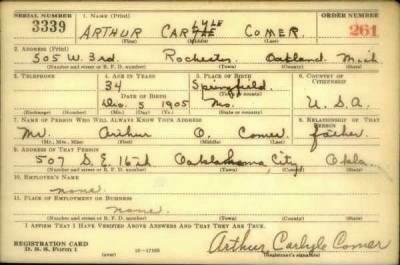 SERIAL NUMBER 1. NAME (Print) ORDER NUMBER
3339 ARTHUR CARLYLE COMER 261
(First) (Middle) (Last)
2. ADDRESS (Print)
505 W. 3rd Rochester, Oakland Mich
(Number and street or R. F. D. number) (Town) (County) (State)
3. TELEPHONE 4. AGE IN YEARS 5. PLACE OF BIRTH 6. COUNTRY OF CITIZENSHIP
34 Springfield,
DATE OF BIRTH (Town or county)
Dec. 5 1905 Mo. U.S.A.
(Exchange) (Number) (Mo.) (Day) (Yr.) (State or country)
7. NAME OF PERSON WHO WILL ALWAYS KNOW YOUR ADDRESS 8. RELATIONSHIP OF THAT PERSON
Mr. Arthur O. Comer father
(Mr., Mrs., Miss) (First) (Middle) (Last)
9. ADDRESS OF THAT PERSON
507 S.E. 16rd Oaklahama City Okla.
(Number and street or R. F. D. number) (Town) (County) (State)
10. EMPLOYER'S NAME
none.
11. PLACE OF EMPLOYMENT OR BUSINESS
none.
(Number and street or R. F. D. number) (Town) (County) (State)
I AFFIRM THAT I HAVE VERIFIED ABOVE ANSWERS AND THAT THEY ARE TRUE.
REGISTRATION CARD Arthur Carlyle Comer
D. S. S. Form 1 (over) 16—17105 (Registrant's signature)